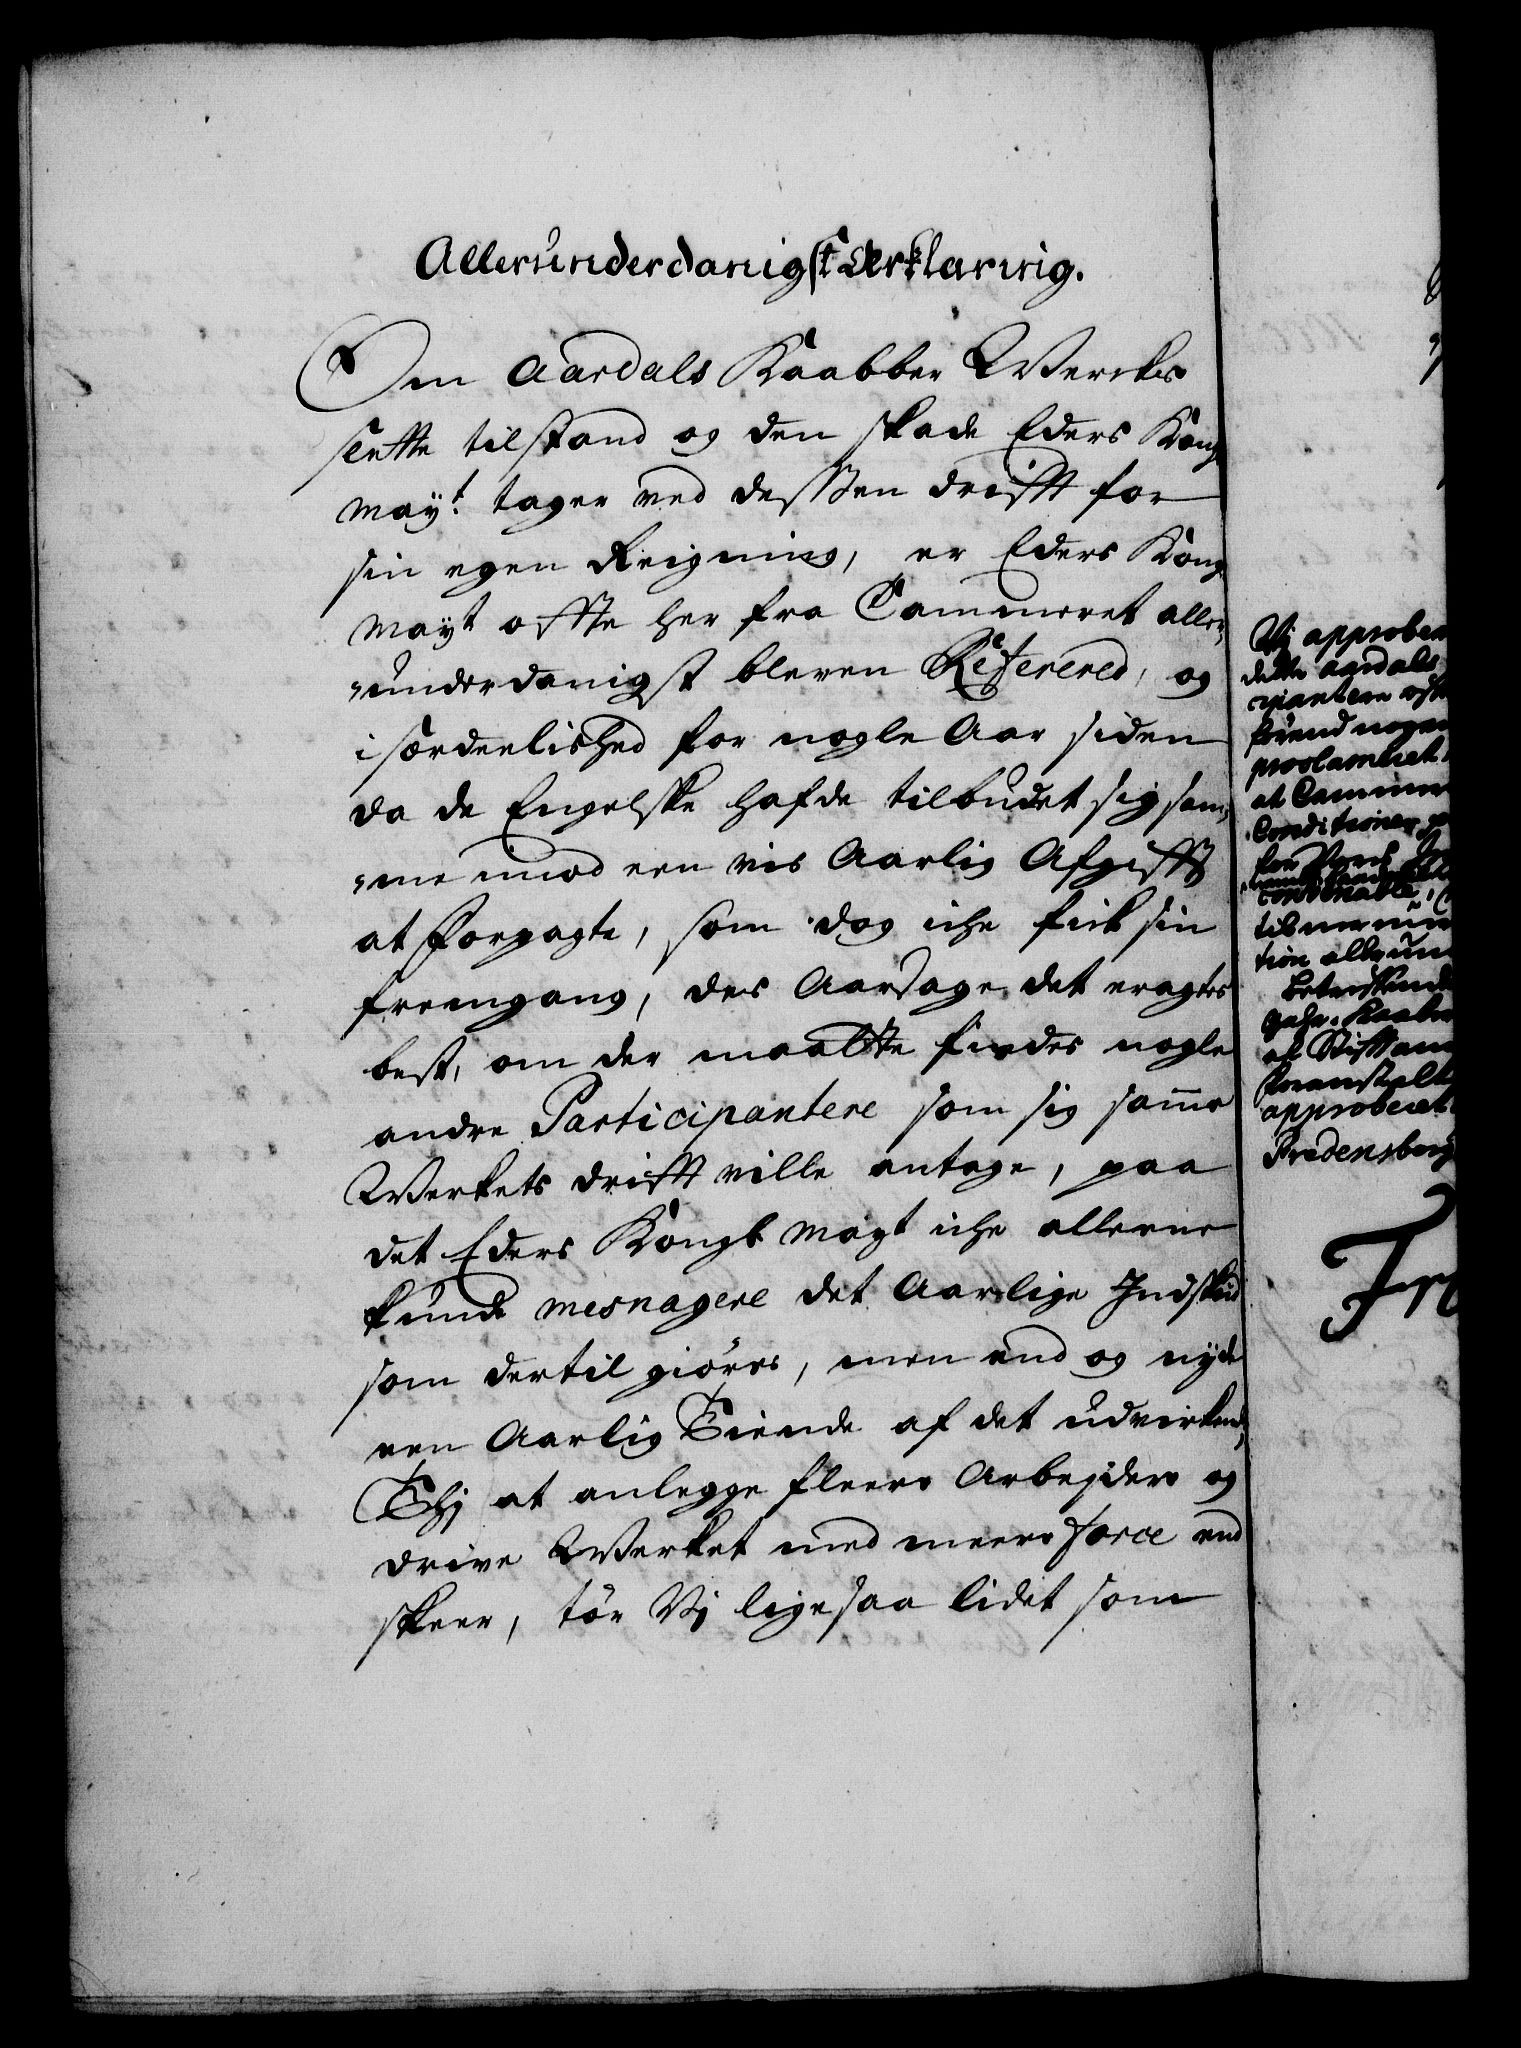 Allerunderdanigst Erklæring.
Om Aardals Kaabber Werckes
slette tilstand og den skade Eders Kongl
mayt. tager ved dessen drifft for
sin egen Reigning, er Eders Kongl
mayt offte her fra Cammeret aller-
underdanigst bleven Refereret, og
i særdeelished for nogle Aar siden
da de Engelske hafde tilbudet sig sam-
me imod een vis Aarlig Afgifft
at forpagte, som dog iche fick sin
fremgang, des Aarsage det eragtes
best, om der maatte findes nogle
andre Participantere som sig samme
Werkets drifft ville antage, paa
det Eders Kongl mayt iche allerne
kunde mesnagere det Aarlige Indskud
som dertil giöres, men end og nyde
een Aarlig Tiende af det udvirkende,
Thj at anlegge fleere Arbejdere og
drive Werket med meere force end
skeer, tör Vj ligesaa lidet som
Vj approbere
dette Aardals
cipantere
förend nogen
proclameret
at Cammer
Conditioner
for Vores
convenable,
til
tion allerun
Betreffende
Kaaber
at Stifftam
foranstalte
approberet
Fredensborg
Fr